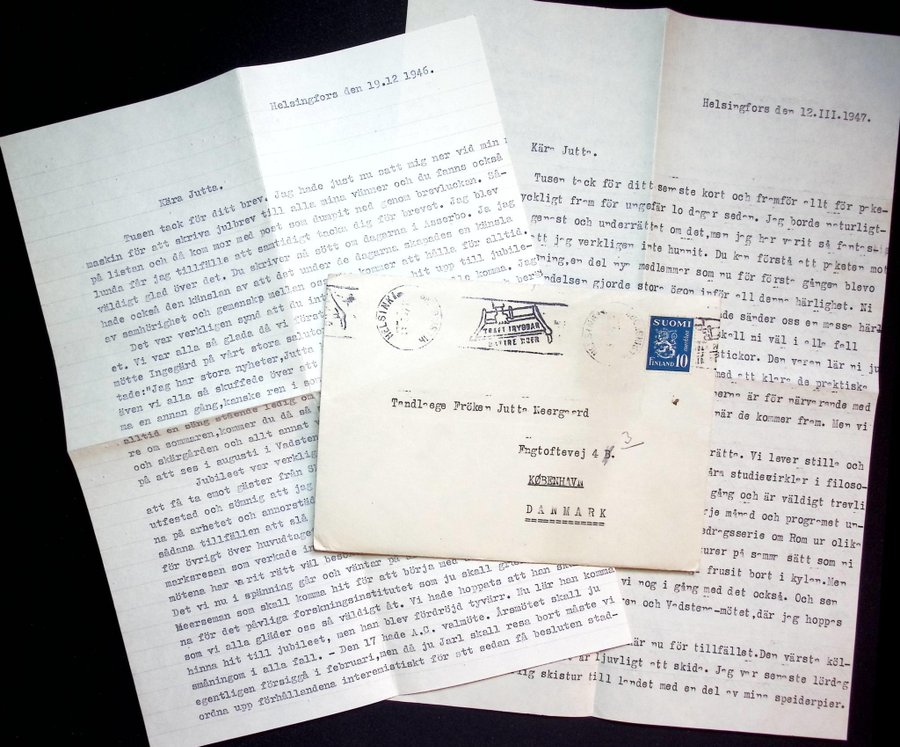 Helsingfors den 19.12 1946.
Kära Jutta.
Tusen tack för ditt brev. Jag hade just nu satt mig ner vid min
maskin för att skriva julbrev till alla mina vänner och du fanns också
på listan och då kom mor med post som dumpit ned genom brevluckan. Så-
lunda får jag tillfälle att samtidigt tacka dig för brevet. Jag blev
väldigt glad över det. Du skriver så sött om dagarna i Asserbo. Ja jag
hade också den känslan av att det under de dagarna skapades en känsla
av samhörighet och gemenskap mellan oss kommer att hålla för alltid.
Det var verkligen synd att du int hit upp till jubile-
et. Vi var alla så glada då vi först lla komma. Jag
mötte Ingegärd på vårt stora saluto
tade:"Jag har stora nyheter,Jutta
även vi alla så skuffede över att
ma en annan gång,kanske ren i som
alltid en säng stående redig om
re om sommaren,kommer du då så
och skärgården och allt annat
på att ses i augusti i Vadsten
Jubileet var verklig
att få ta emot gäster från S
utfestad och sömnig att jag
na på arbetet och annorstäd
sådana tillfällen att slå
för övrigt över huvudtage
marksresan som verkade in
mötena har varit rätt väl bes
Det vi nu i spänning går och väntar på
Meerseman som skall komma hit för att börja med
na för det påvliga forskningsinstitutet som ju skall gr
som vi alla gläder oss så väldigt åt. Vi hade hoppats att han sk
hinna hit till jubileet, men han blev fördröjd tyvärr. Nu lär han komma
småningom i alla fall. - Den 17 hade A.C. valmöte. Årsmötet skall ju
egentligen försiggå i februari,men då ju Jarl skall resa bort måste vi
ordna upp förhållandena interemistiskt för att sedan få besluten stad-
Helsingfors den 12.III.1947.
Kära Jutta.
Tusen tack för ditt senaste kort och framför allt för pake-
yckligt fram för ungefär 10 dagar sedan. Jag borde naturligt-
genast och underrättat om det,men jag har varit så fantas
att jag verkligen inte hunnit. Du kan förstå att paketen mot
ning,en del nya medlemmar som nu för första gången blevo
yndelsen gjorde stora ögon inför all denna härlighet. Ni
de sänder oss en massa härl
skall ni väl i alla fall
stickor. Den varan lär ni ju
med att klara de praktiska
nerna är för närvarande med
när de kommer fram. Men vi
rätta. Vi lever stilla och
åra studiecirklar i filoso-
gång och är väldigt trevli
rje månad och programet un-
edragsserie om Rom ur olika
urer på samma sätt som ni
frusit bort i kylan.Men
vi nog i gång med det också. Och sen
en och Vadstena-mötet,där jag hoppas
här nu för tillfället.Den värsta köl-
är ljuvligt att skida. Jag var senaste lördag
lig skistur till landet med en del av mina speiderpier.
HELSINKI
TEXET TRYGGAR
SUOMI
FINLAND 10
Tandlæge Fröken Jutta Neergaard
Engtoftevej 4 B. 3
KØBENHAVN
DANMARK